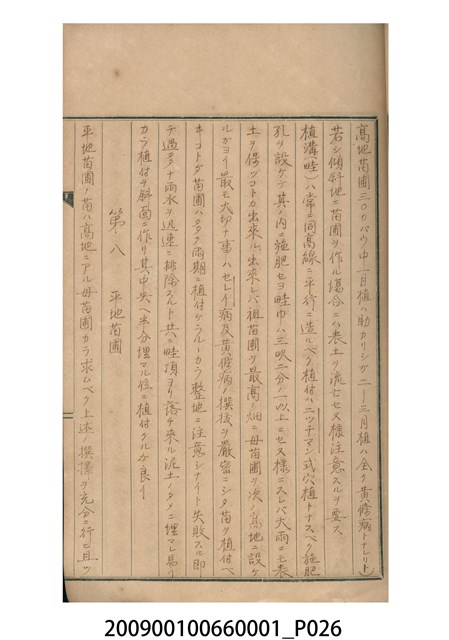 高地苗圃三〇〇バウ中一月植ハ助カリシガ二ー三月植ハ全ク黄條病トナレリト)
若シ傾斜地ニ苗圃ヲ作ル場合ニハ表土ヲ流亡セヌ様注意スルヲ要ス
植溝(畦)ハ常ニ同高線ニ平行ニ造ルベク植付ハニツチマン式穴植トナスベク施肥
孔ヲ設ケテ其ノ内ニ施肥セヨ畦巾ハ三呎二分ノ一以上ニセヌ様ニスレバ大雨ニモ表
土ヲ保ツコトガ出來ル出來レバ祖苗圃ヲ最高ノ畑ニ母苗圃ヲ次ノ高地ニ設ケ
ルガヨイ最モ大切ナ事ハセレー病及黄條病ノ撰擇ヲ嚴密ニシタ苗ヲ植付ベ
キコトダ苗圃ハタダ雨期ニ植付ケラルーカラ整地ニ注意シナイト失敗スル即
チ過多ナ雨水ヲ迅速ニ排除スルト共ニ畦頂ヨリ落チ來ル泥土ノタメニ埋マレ易イ
カラ植付ヲ斜面ニ作リ其中央ヘ半分埋マル位ニ植付クルガ良イ
第八 平地苗圃
平地苗圃ノ苗ハ高地ニアル母苗圃カラ求ムベク上述ノ撰擇ヲ充分ニ行ヒ且ツ
200900100660001_P026